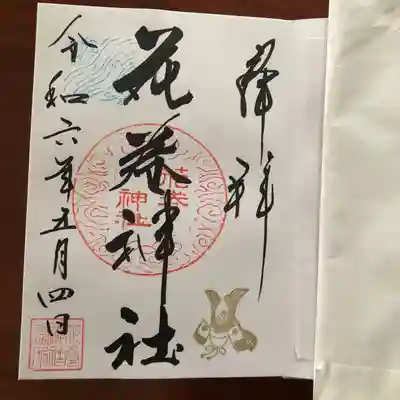 奉拝
花巻神社
花巻
神社
令和六年五月四日